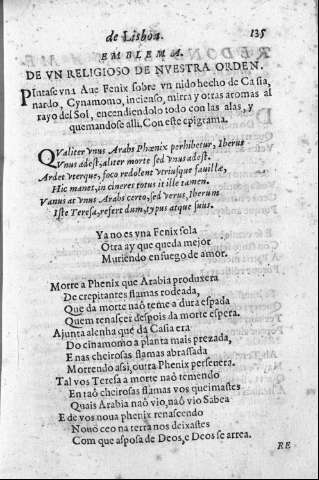 de Lisboa. 135
EMBLEMA.
DE VN RELIGIOSO DE NVESTRA ORDEN.
PIntase vna Aue Fenix sobre vn nido hecho de Casia,
nardo, Cynamomo, incienso, mirra y otras aromas al
rayo del Sol, encendiendolo todo con las alas, y
quemandose alli. Con este epigrama.
QValiter vnus Arabs Phœnix perhibetur, Iberus
Vnus adest, aliter morte sed vnus adest.
Ardet vterque, foco redolent vtriusque fauillæ,
Hic manet, in cineres totus it ille tamen.
Vanus at vnus Arabs certo, sed verus Iberum
Iste Teresa, refert dum, typus atque suus.
Ya no es vna Fenix sola
Otra ay que queda mejor
Muriendo en fuego de amor.
Morre a Phenix que Arabia produzera
De crepitantes flamas rodeada,
Que da morte naõ teme a dura espada
Quem renascer despois da morte espera.
Ajunta a lenha que da Casia era
Do cinamomo a planta mais prezada,
E nas cheirosas flamas abrassada
Morrendo assi, outra Phenix perseuera.
Tal vos Teresa a morte naõ temendo
En taõ cheirosas flamas vos queimastes
Quais Arabia naõ vio, naõ vio Sabea
E de vos noua phenix renascendo
Nouo ceo na terra nos deixastes
Com que a sposa de Deos, e Deos se arrea.
RE